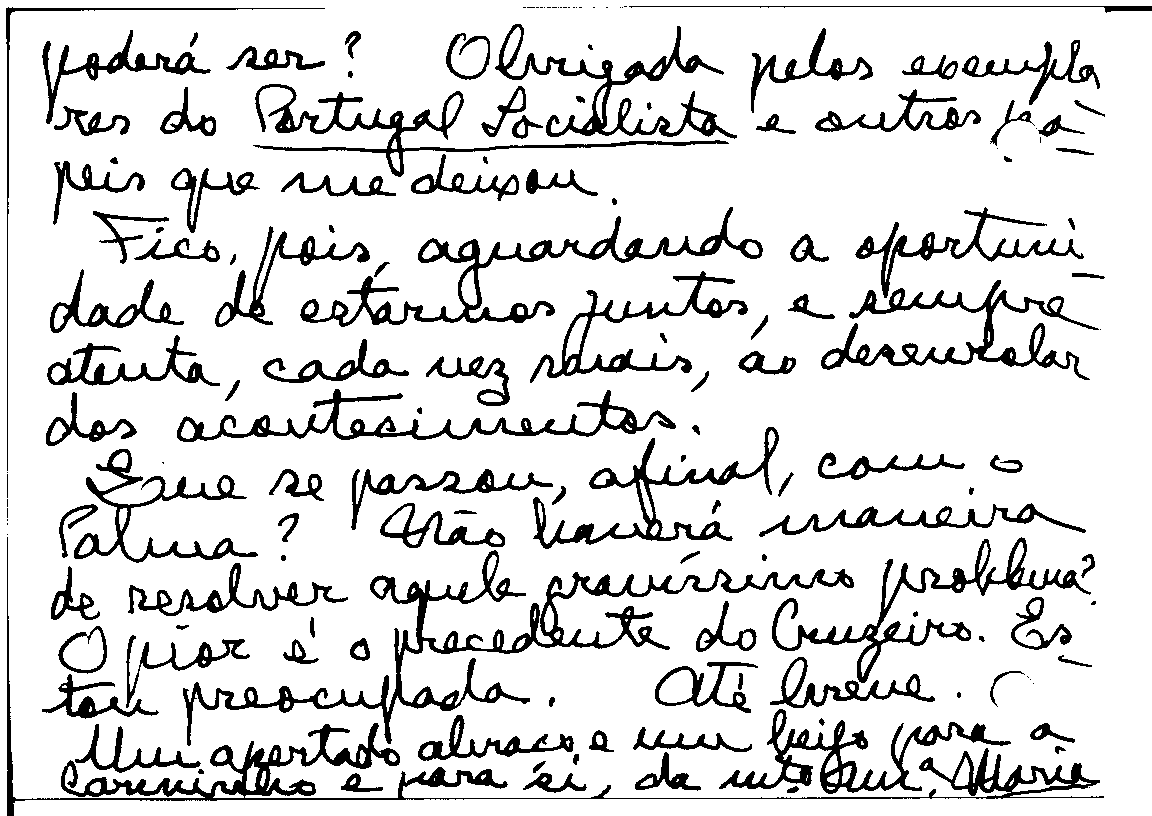 poderá ser? Obrigada pelos exempla
res do Portugal Socialista e outros pa-
peis que me deixou.
Fico, pois, aguardando a oportuni-
dade de estarmos juntos, e sempre
atenta, cada vez mais, ao desenrolar
dos acontecimentos.
Que se passou, afinal, com o
Palma? Não haverá maneira
de resolver aquele gravíssimo problema?
O pior é o precedente do Cruzeiro. Es-
tou preocupada. Até breve.
Um apertado abraço e um beijo para a
e para si, da mto Am.ª Maria